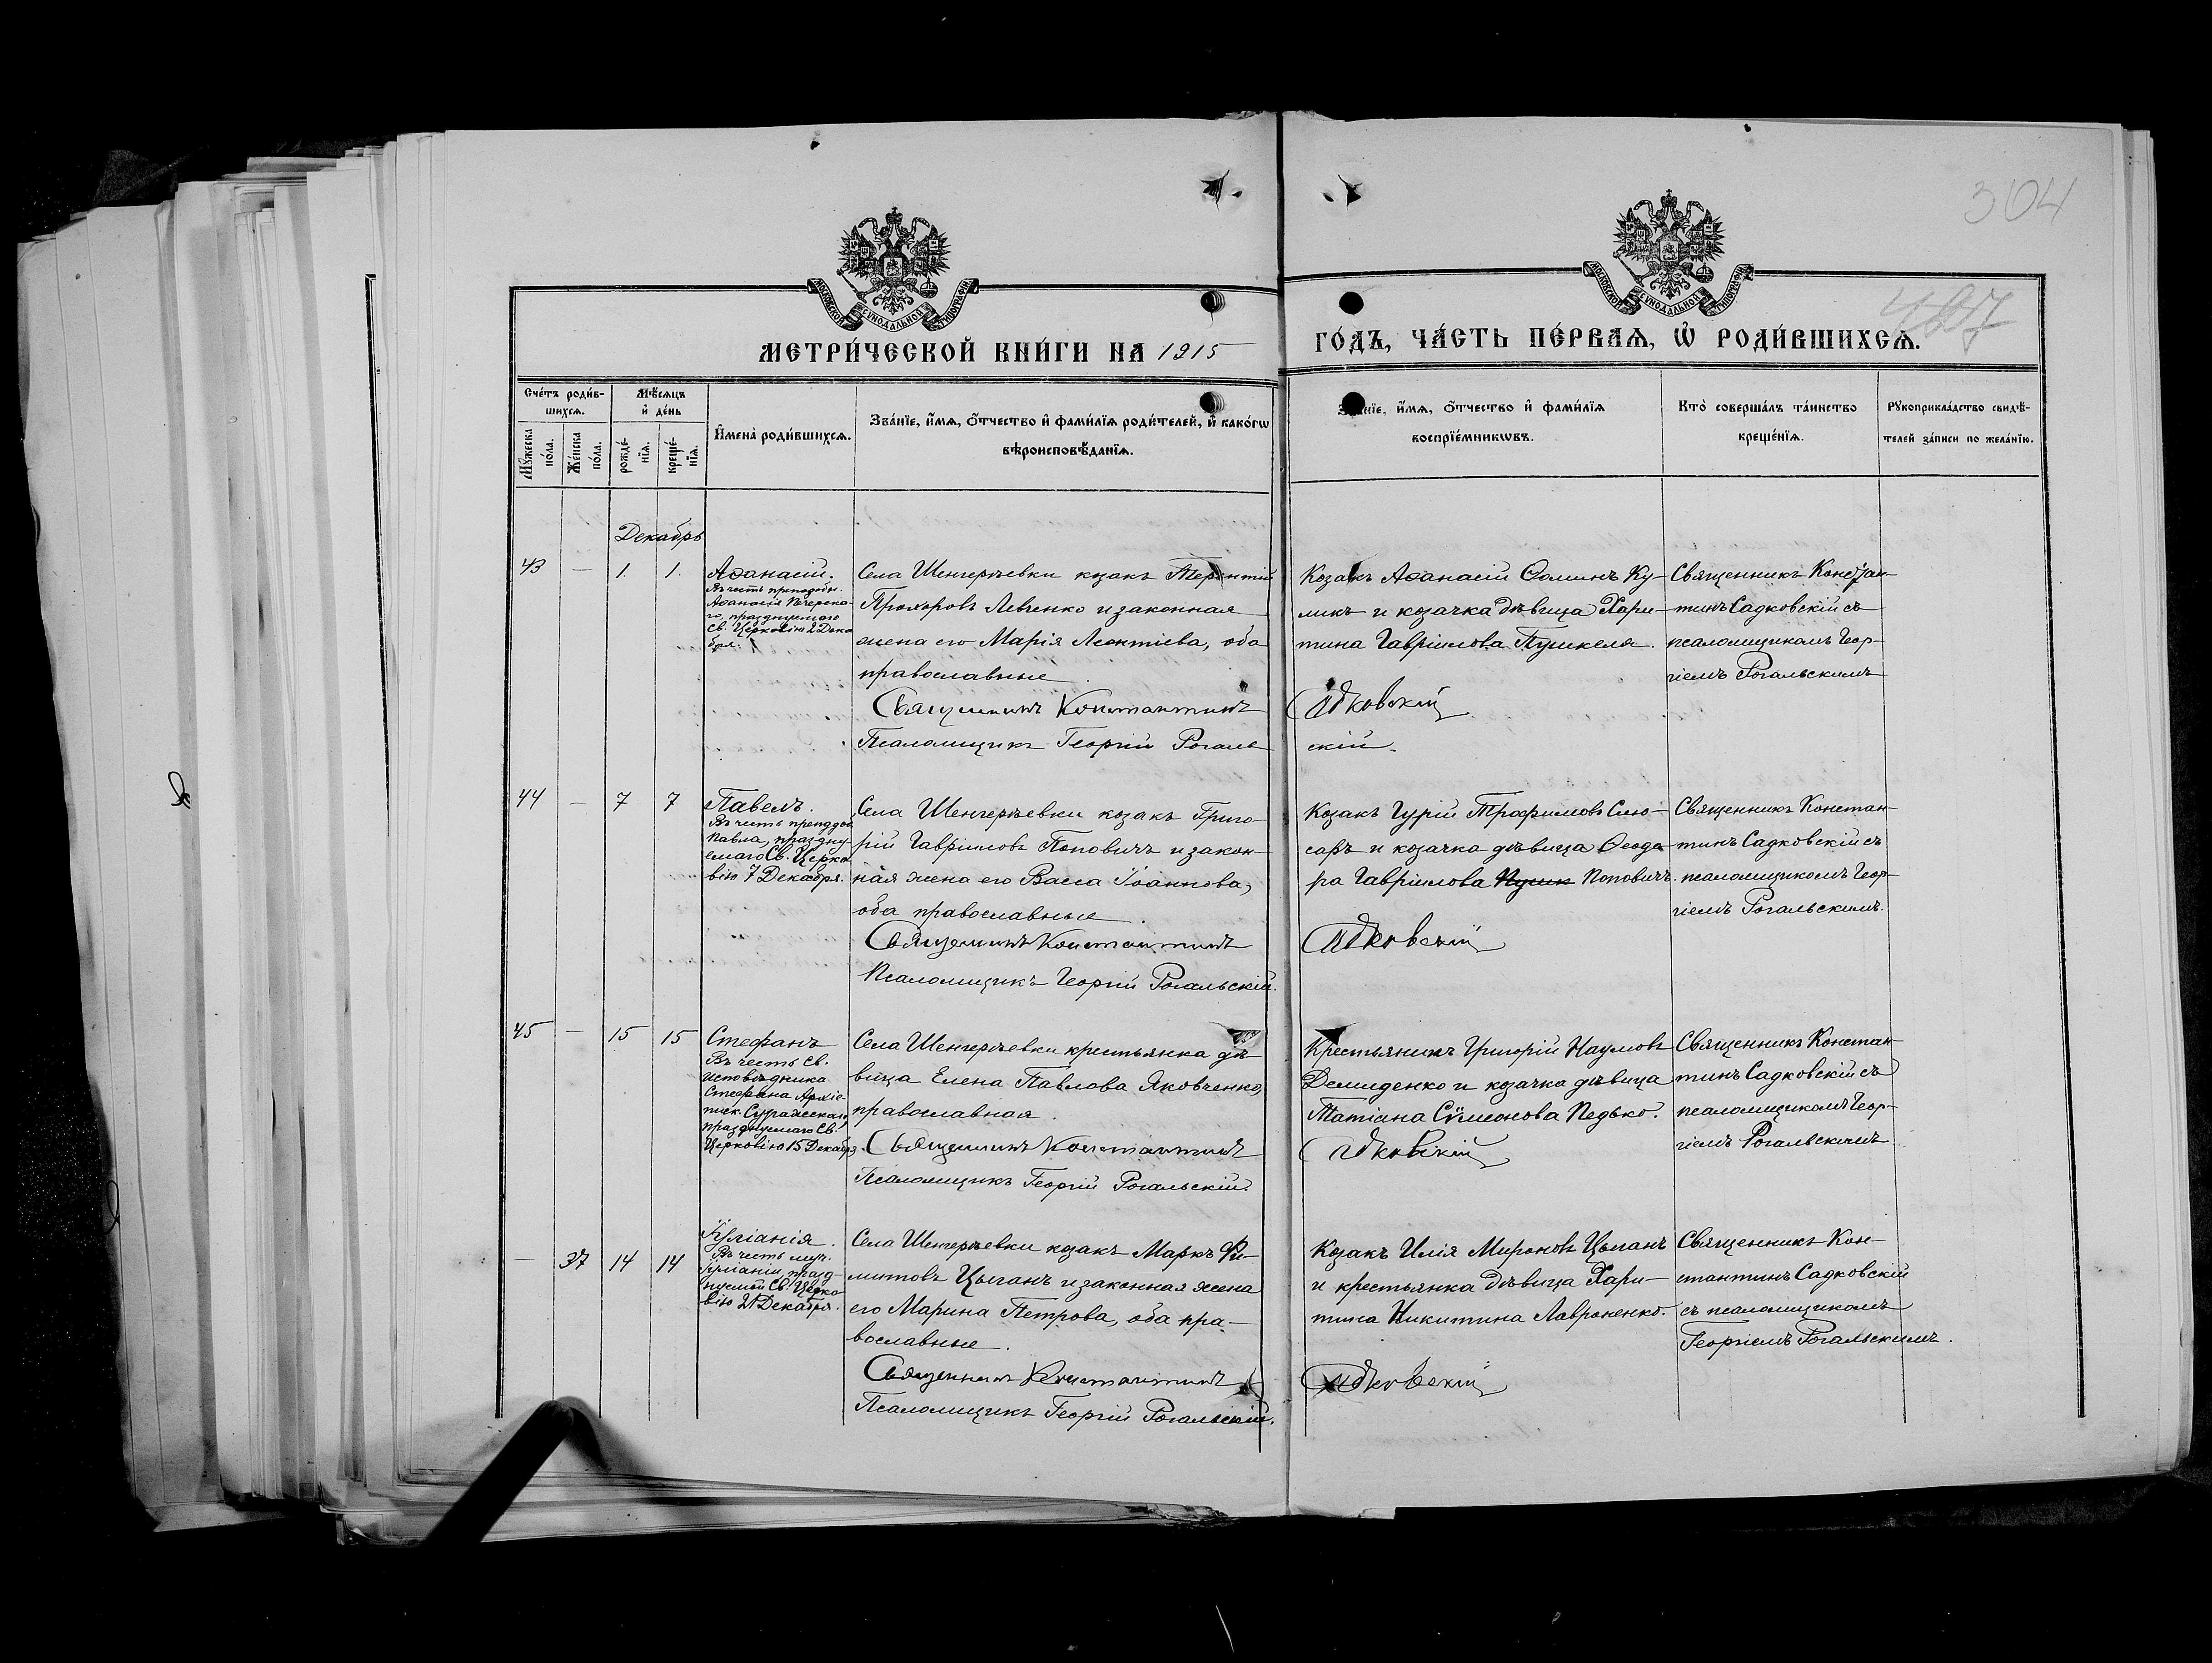 304
427
МОСКОВСКОЙ СУНОДАЛЬНОЙ ТИПОГРАФІИ
МОСКОВСКОЙ СУНОДАЛЬНОЙ ТИПОГРАФІИ
МЕТРИ́ЧЕСКОЙ КНИ́ГИ НА 1915
ГО́ДЪ, ЧА́СТЬ ПЕ́РВАѦ, Ѡ РОДИ́ВШИХСѦ.
Сче́тъ роди́в-
шихсѧ.
Мꙋ́жеска
по́ла.
Же́нска
по́ла.
Мѣ́сѧцъ
и де́нь
рожде́-
нїѧ.
креще́-
нїѧ.
Имена̀ роди́вшихсѧ.
Зва́нїе, и́мѧ, о́тчество и фами́лїѧ роди́телей, и како́гѡ
вѣроисповѣ́данїѧ.
Зва́нїе, и́мѧ, о́тчество и фами́лїѧ
воспрїе́мникѡвъ.
Кто̀ соверша́лъ та́инство
креще́нїѧ.
Рꙋкоприкла́дство свидѣ́-
телей за́писи по жела́нїю.
Декабрь
43 — 1. 1.
Аѳанасій.
Въ честь преподобн.
Аѳанасія Печерска-
го, празднуемаго
Св. Церковію 2 Дека
бря.
Села Шенгерѣевки козакъ Терентій
Прохоровъ Левченко и законная
жена его Марія Леонтіева, оба
православные.
Священникъ Константинъ
Псаломщикъ Георгій Рогаль
Козакъ Аѳанасій Ѳоминъ Ку-
ликъ и козачка дѣвица Хари-
тина Гавріилова Пушкеля.
Садковскій
скій.
Священникъ Констан-
тинъ Садковскій съ
псаломщикомъ Геор-
гіемъ Рогальскимъ
44 — 7 7
Павелъ.
Въ честь преподоб
Павла, праздну-
емаго Св. Церко
вію 7 Декабря.
Села Шенгерѣевки козакъ Григо-
рій Гавріиловъ Поповичъ и закон-
ная жена его Васса Іоаннова,
оба православные.
Священникъ Константинъ
Псаломщикъ Георгій Рогальскій.
Козакъ Гурій Трофимовъ Слю-
сарь и козачка дѣвица Ѳеодо-
ра Гавріилова Пушк Поповичъ.
Садковскій
Священникъ Констан-
тинъ Садковскій съ
псаломщикомъ Геор-
гіемъ Рогальскимъ.
45 — 15 15
Стефанъ
Въ честь Св.
исповѣдника
Стефана Архіе-
писк. Сурожскаго
празднуемаго Св.
Церковію 15 Декабр.
Села Шенгерѣевки крестьянка дѣ-
вица Елена Павлова Яковченко,
православная.
Священникъ Константинъ
Псаломщикъ Георгій Рогальскій.
Крестьянинъ Григорій Наумовъ
Демиденко и козачка дѣвица
Татіана Сѵмеонова Педько.
Садковскій
Священникъ Констан-
тинъ Садковскій съ
псаломщикомъ Геор-
гіемъ Рогальскимъ
— 37 14 14
Іуліанія.
Въ честь муч.
Іуліаніи, празд-
нуемой Св. Церко
вію 21 Декабря.
Села Шенгерѣевки козакъ Маркъ Фи-
митовъ Цыганъ и законная жена
его Марина Петрова, оба пра-
вославные.
Священникъ Константинъ
Псаломщикъ Георгій Рогальскій.
Козакъ Илія Мироновъ Цыганъ
и крестьянка дѣвица Хари-
тина Никитина Лавроненко.
Садковскій
Священникъ Кон-
стантинъ Садковскій
съ псаломщикомъ
Георгіемъ Рогальскимъ.